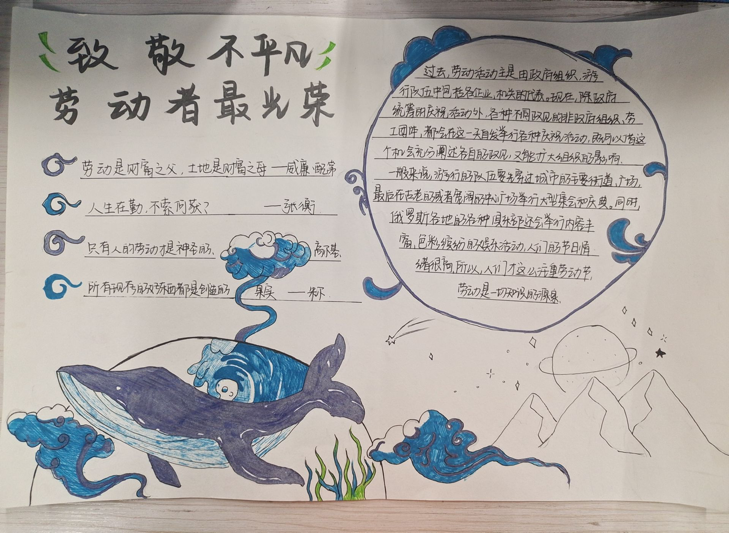 致敬不平凡
劳动者最光荣
劳动是财富之父,土地是财富之母——威廉·配第
人生在勤,不索何获?——张衡
只有人的劳动才是神圣的. 高尔基.
所有现存的好东西都是创造的果实——
过去,劳动活动主是由政府组织,游
行队伍中包括各企业,机关的代表。现在,除政府
统筹的庆祝活动外,各种不同政见的非政府组织,劳
工团体,都会在这一天自发举行各种庆祝活动,既可以有这
个机会充分阐述各自的政见,又能扩大组织的影响.
一般来说,游行的队伍要穿过城市的主要街道,广场,
最后在古老的或者宽阔的中心广场举行大型集会和庆典。同时,
俄罗斯各地的各种俱乐部还会举行内容丰
富,色彩缤纷的娱乐活动,人们的节日情
绪很高,所以,人们才这么注重劳动节,
劳动是一切知识的源泉.